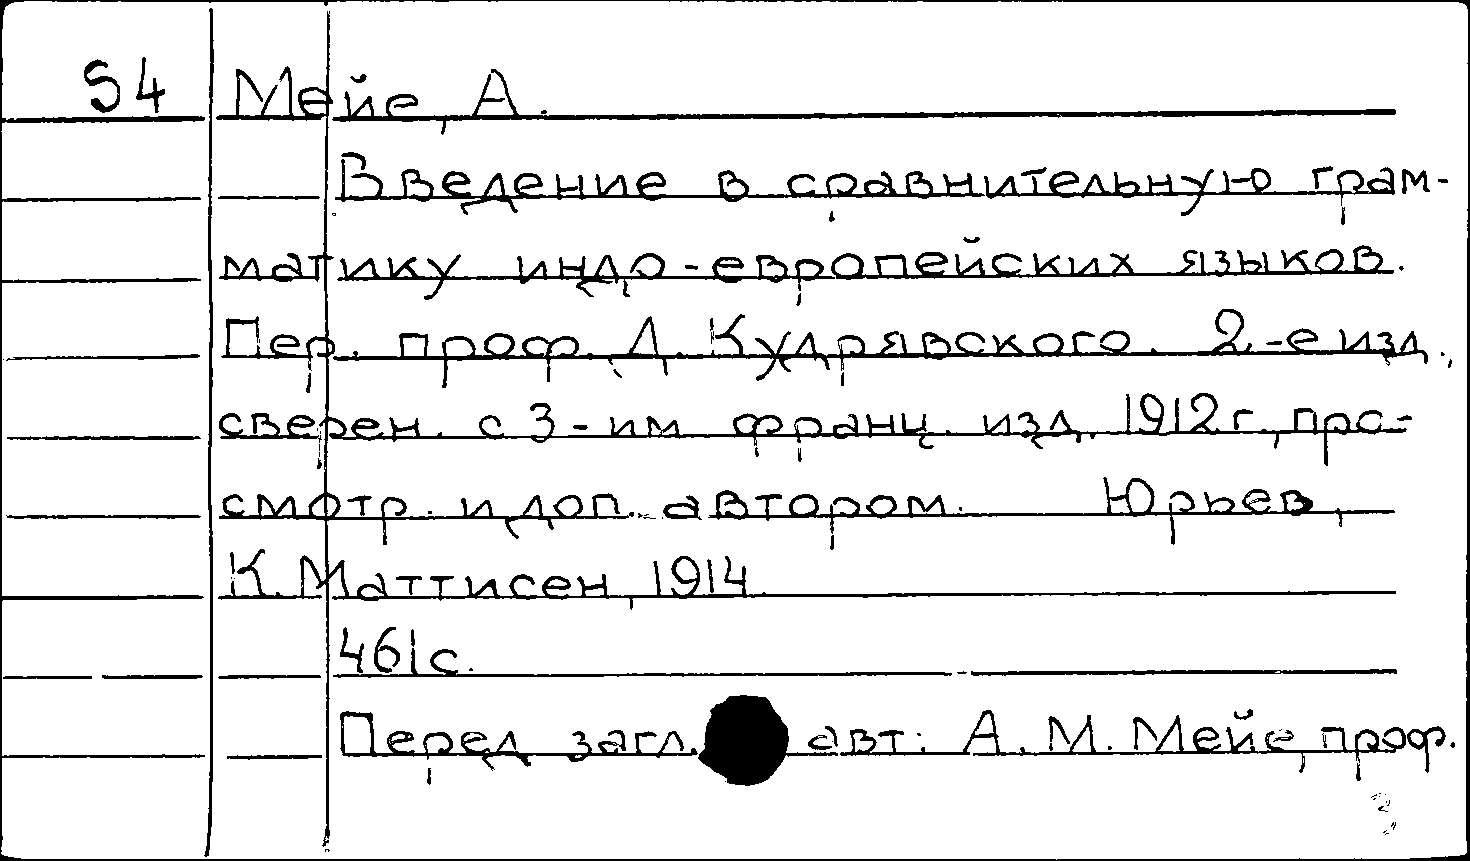 S4 Мейе, А.
Введение в сравнительную грам-
матику индо-европейских языков.
Пер. проф. Д. Кудрявского. 2-е изд.,
сверен. с 3-им франц. изд. 1912 г., про-
смотр. и доп. автором. Юрьев,
К. Маттисен, 1914.
461 с.
Перед загл. авт: А. М. Мейе, проф.